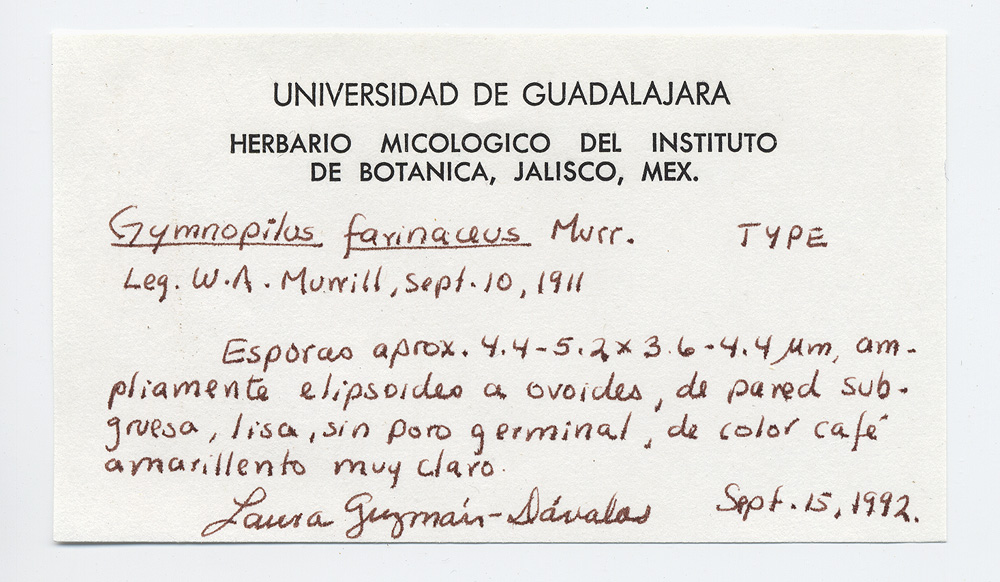 UNIVERSIDAD DE GUADALAJARA
HERBARIO MICOLOGICO DEL INSTITUTO
DE BOTANICA, JALISCO, MEX.
Gymnopilus farinaceus Murr. TYPE
Leg. W.A. Murrill, Sept. 10, 1911
Esporas aprox. 4.4-5.2 x 3.6-4.4 µm, am-
pliamente elipsoides a ovoides, de pared sub-
gruesa, lisa, sin poro germinal, de color café
amarillento muy claro.
Laura Guzmán-Dávalos Sept. 15, 1992.